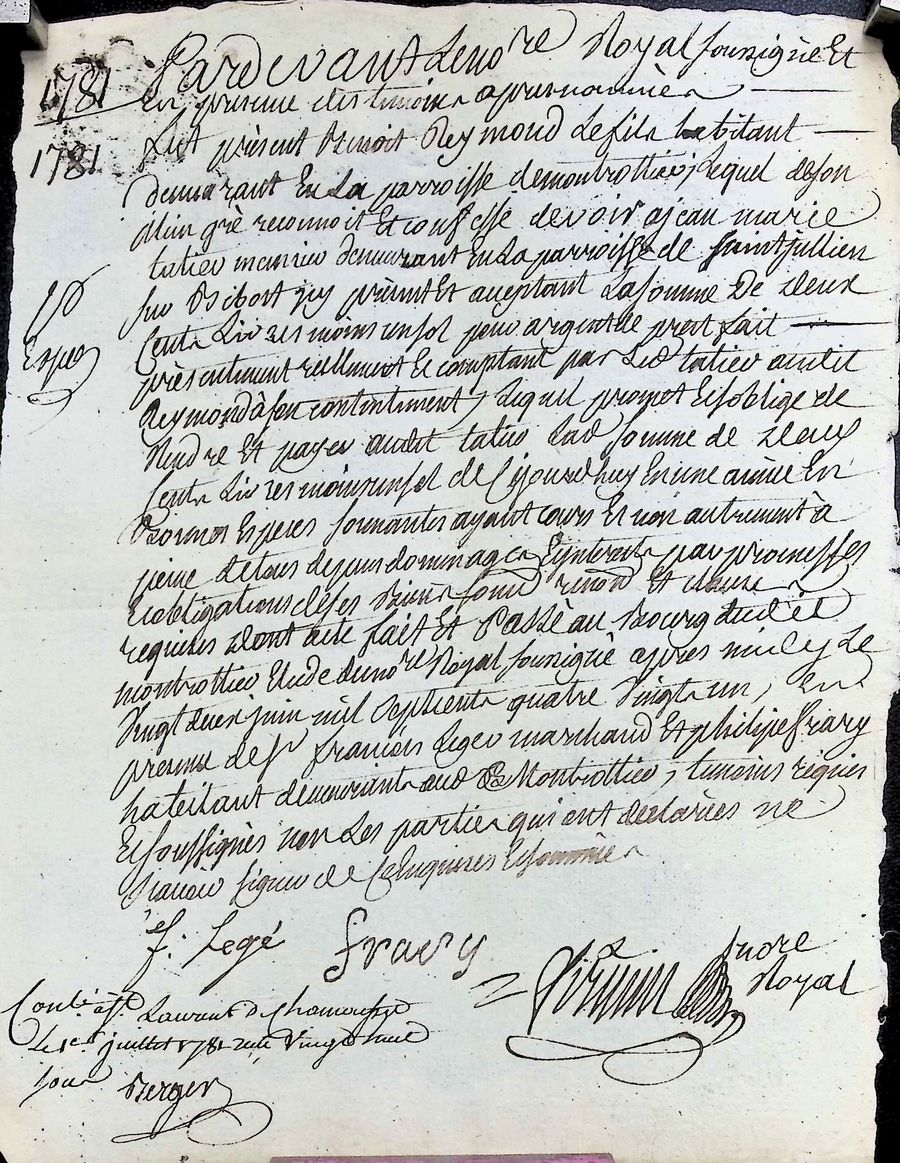 1781
1781
Expe
Pardevant Le no.re Royal soussigné Et
en presence des temoins apres nommés
fut present Benoit Reymond Le fils habitant
demeurant En La parroisse de montrottier, Lequel de son
bon gré reconnoit Et confesse devoir a jean marie
tatieu meunier demeurant En La parroisse de saint jullien
sur Bibost icy present Et aceptant La somme De deux
Cents Livres moins un sol pour argent de prest fait
presentement reellement Et comptant par Led tatieu audit
Reymond à son contentement, Lequel promet Et s'oblige de
Rendre Et payer audit tatieu Lad somme de deux
Cents Livres moins un sol de Cejourdhuy En une année En
Bonnes Especes sonnantes ayant cours Et non autrement à
peine de tous depens dommages Et interests par promesses
Et obligations de ses Biens soum renon Et clauses
requises dont acte fait Et Passé au Bourg dudit
montrottier Etude du no.re Royal soussigné apres midy Le
Vingt deux juin mil sept cents quatre Vingt un, En
presence de s.r francois Leger marchand Et philipe fravy
habitant demeurants aud Montrottier, temoins requis
Et soussignés non Les parties qui ont declarées ne
sçavoir signer de Ce enquises Et sommées
f. Legé
fravy
no.re
Royal
Cont.é a S.t Laurent de Chamousset
Le 1.er juillet 1781 recu Vingt neuf
sous
Berger